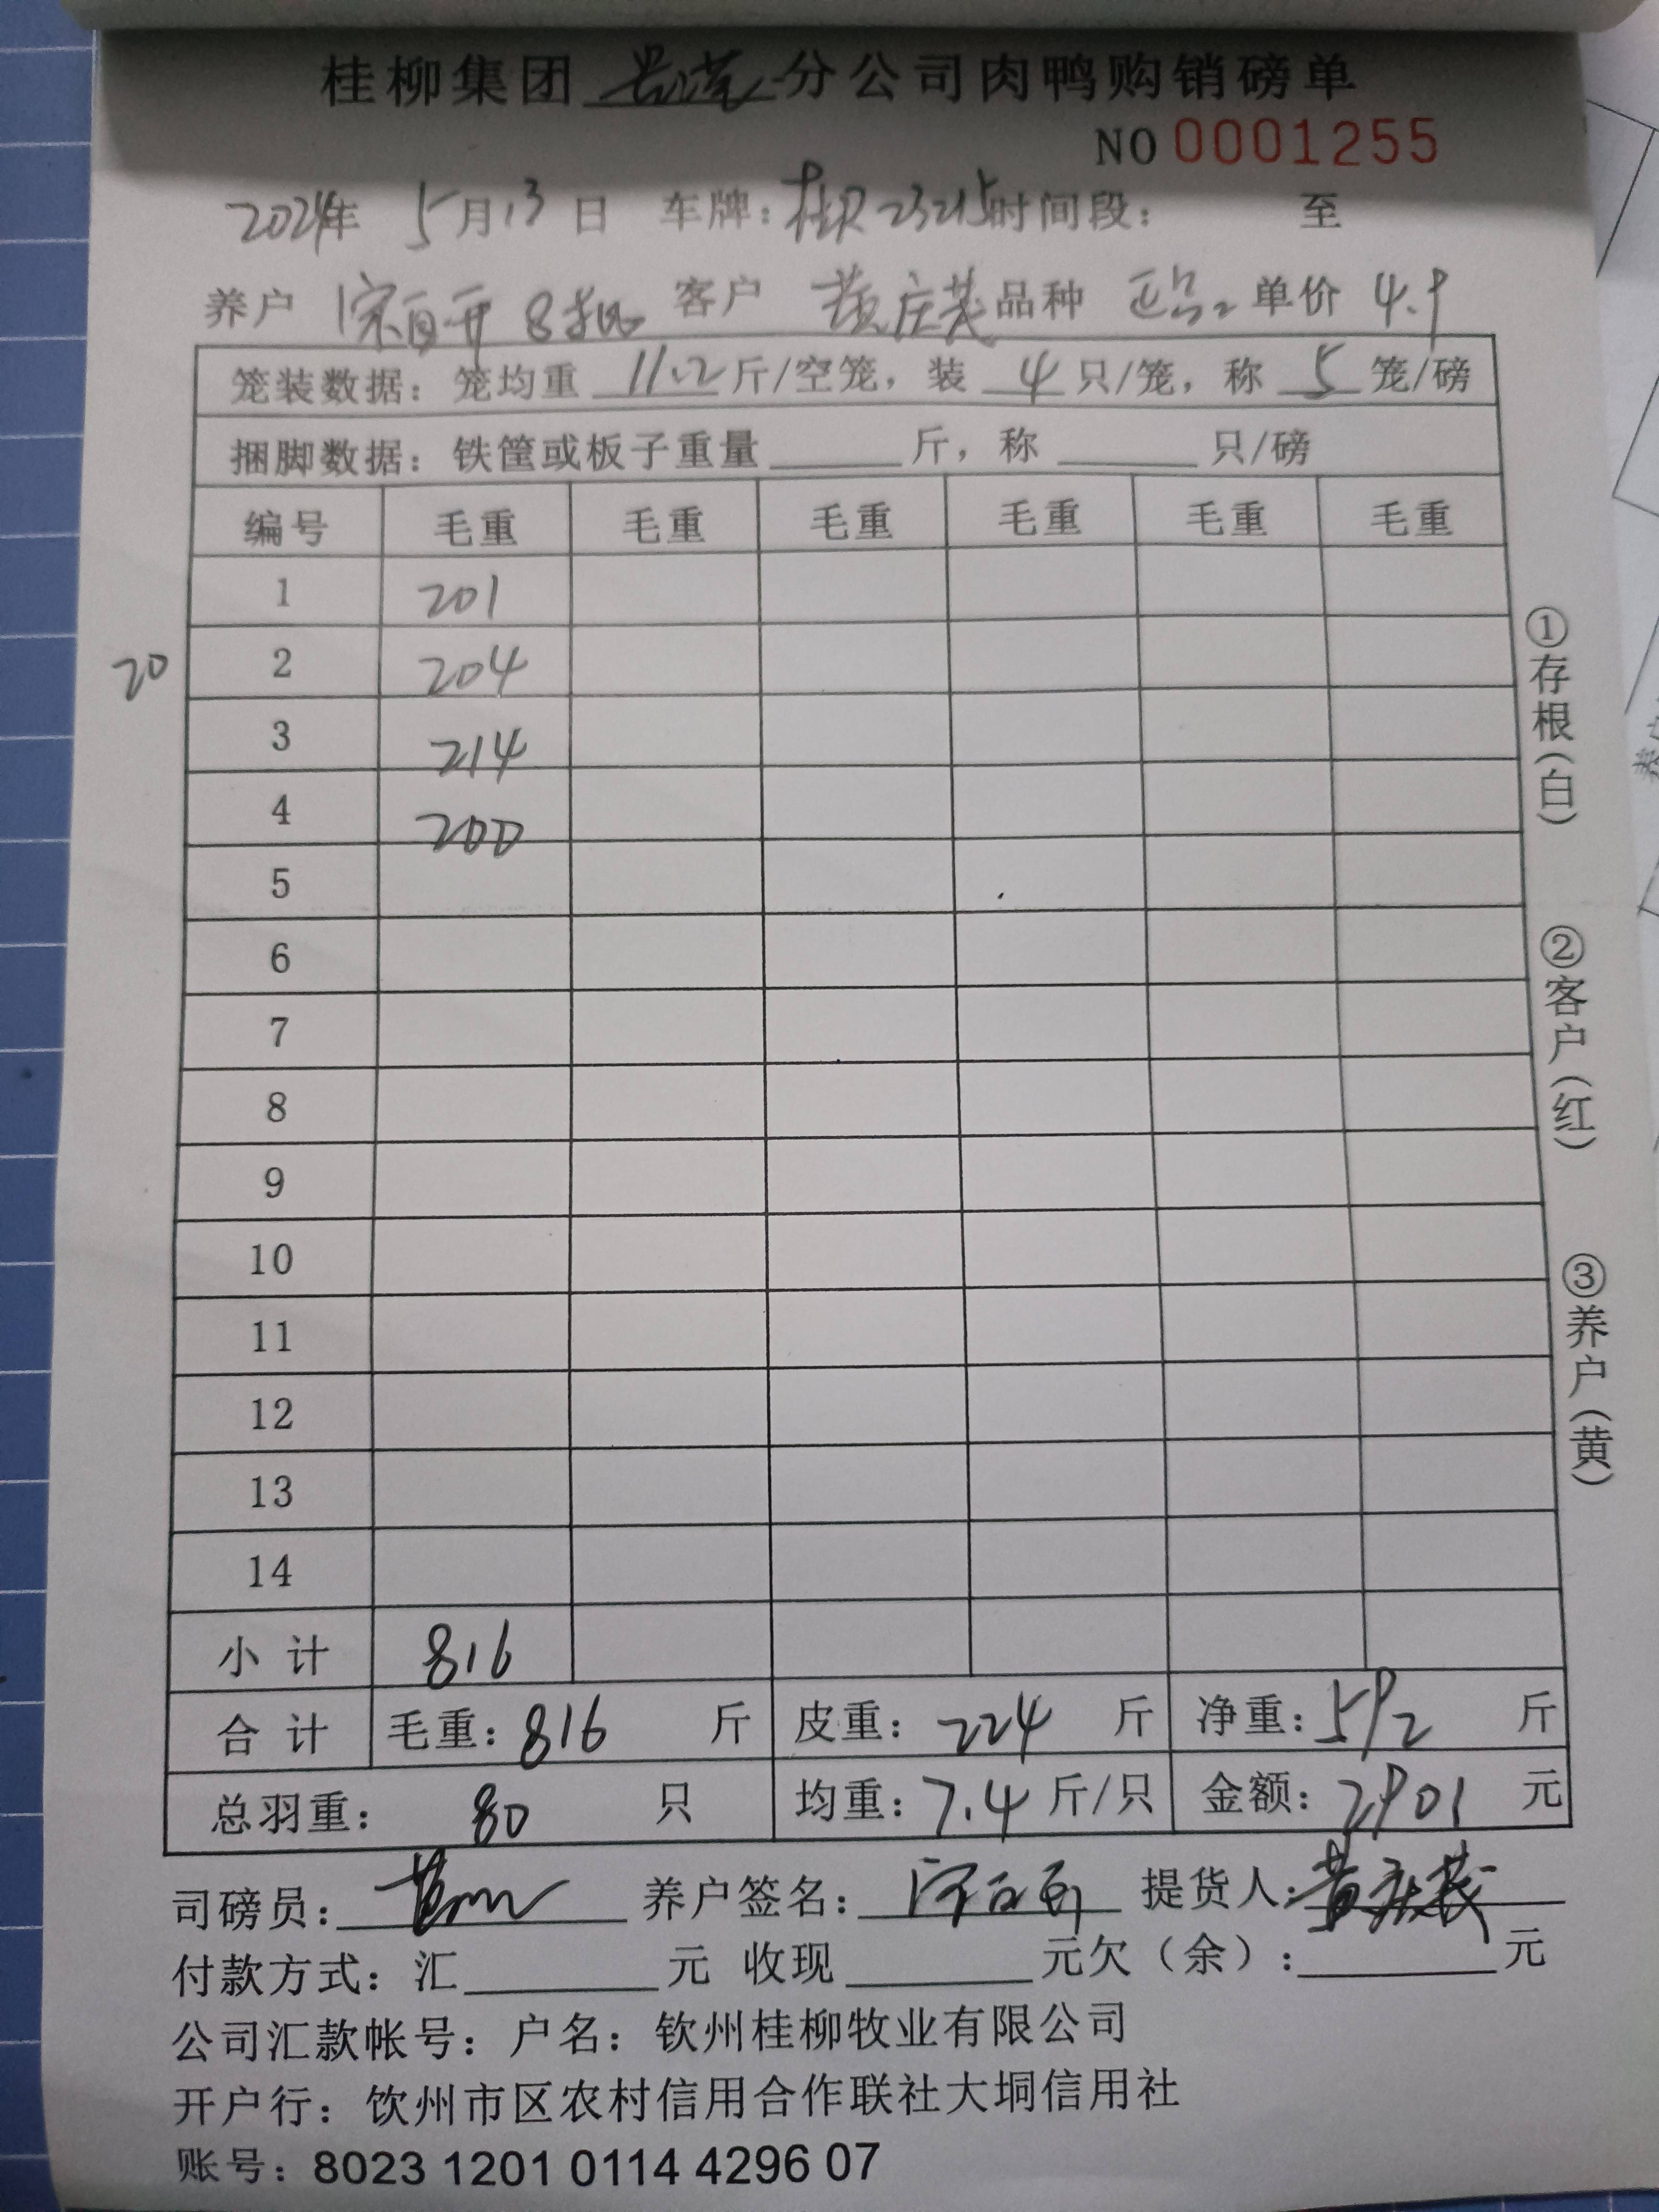 桂柳集团 分公司肉鸭购销磅单
NO 0001255
2024年 5月13日 车牌: 桂R23215 时间段: 至
养户 8批 客户 黄庆茂 品种 正品2 单价 4.9
笼装数据: 笼均重 11.2 斤/空笼, 装 4 只/笼, 称 5 笼/磅
捆脚数据: 铁筐或板子重量 斤, 称 只/磅
编号 毛重 毛重 毛重 毛重 毛重 毛重
1 201
20 2 204
3 214
4 200
5
6
7
8
9
10
11
12
13
14
小计 816
合计 毛重: 816 斤 皮重: 224 斤 净重: 592 斤
总羽重: 80 只 均重: 7.4 斤/只 金额: 2901 元
司磅员: 养户签名: 提货人: 黄庆茂
付款方式: 汇 元 收现 元欠(余): 元
公司汇款帐号: 户名: 钦州桂柳牧业有限公司
开户行: 钦州市区农村信用合作联社大垌信用社
账号: 8023 1201 0114 4296 07
①存根(白)
②客户(红)
③养户(黄)